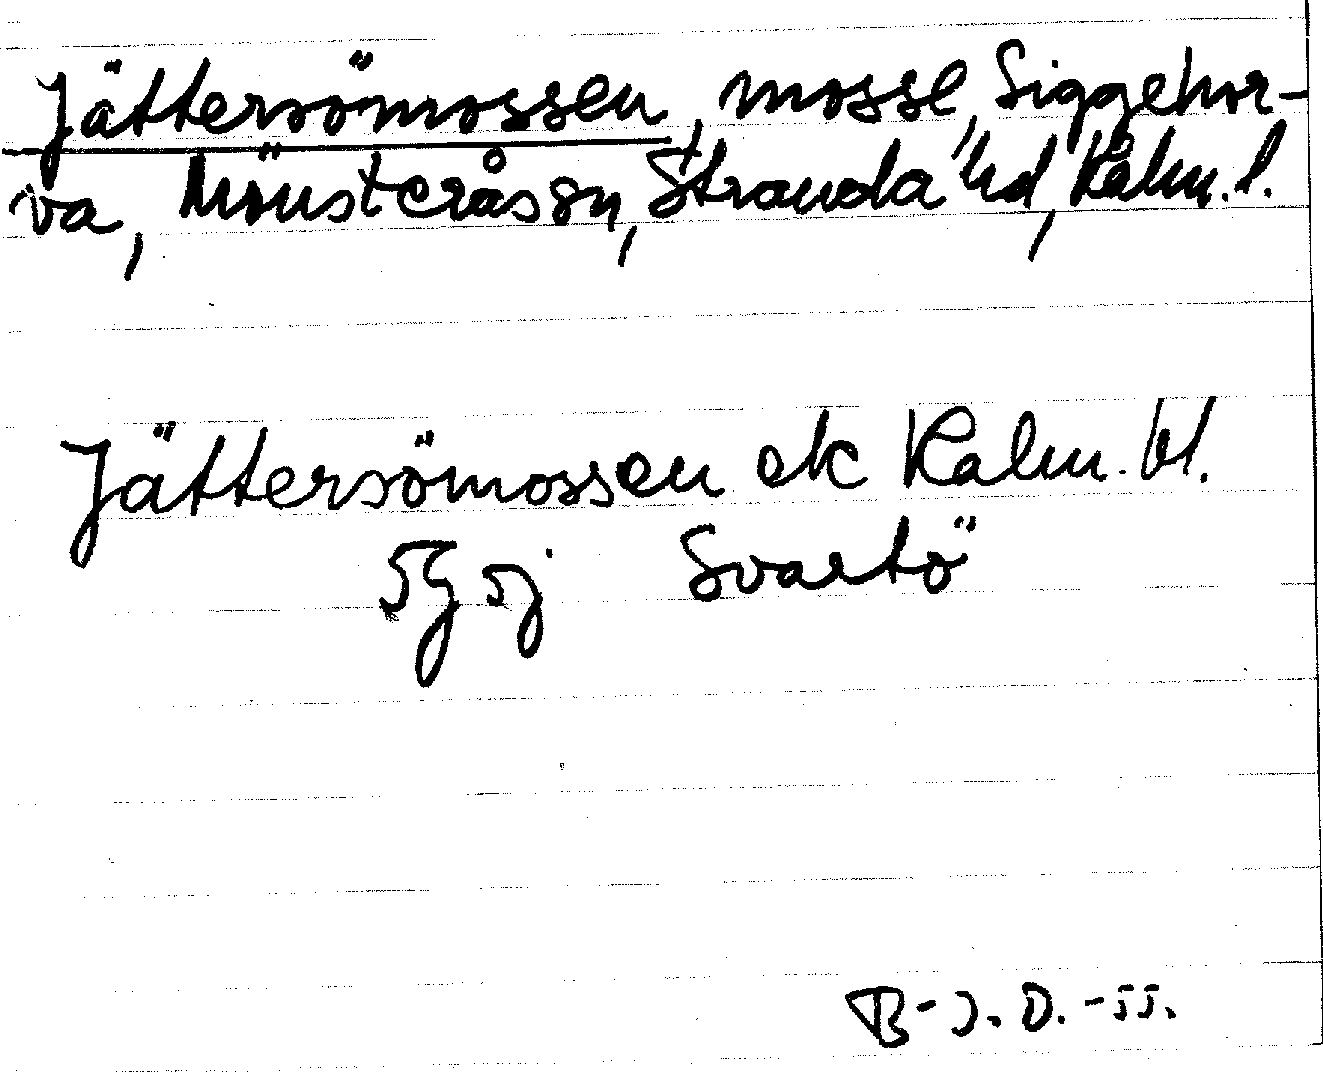 Jättersömossen, mosse, Siggehor-
va, Mönsterås sn, Stranda hd, Kalm. l.
Jättersömossen ek Kalm. bl.
5g 5j Svartö
B-J. D. -55.